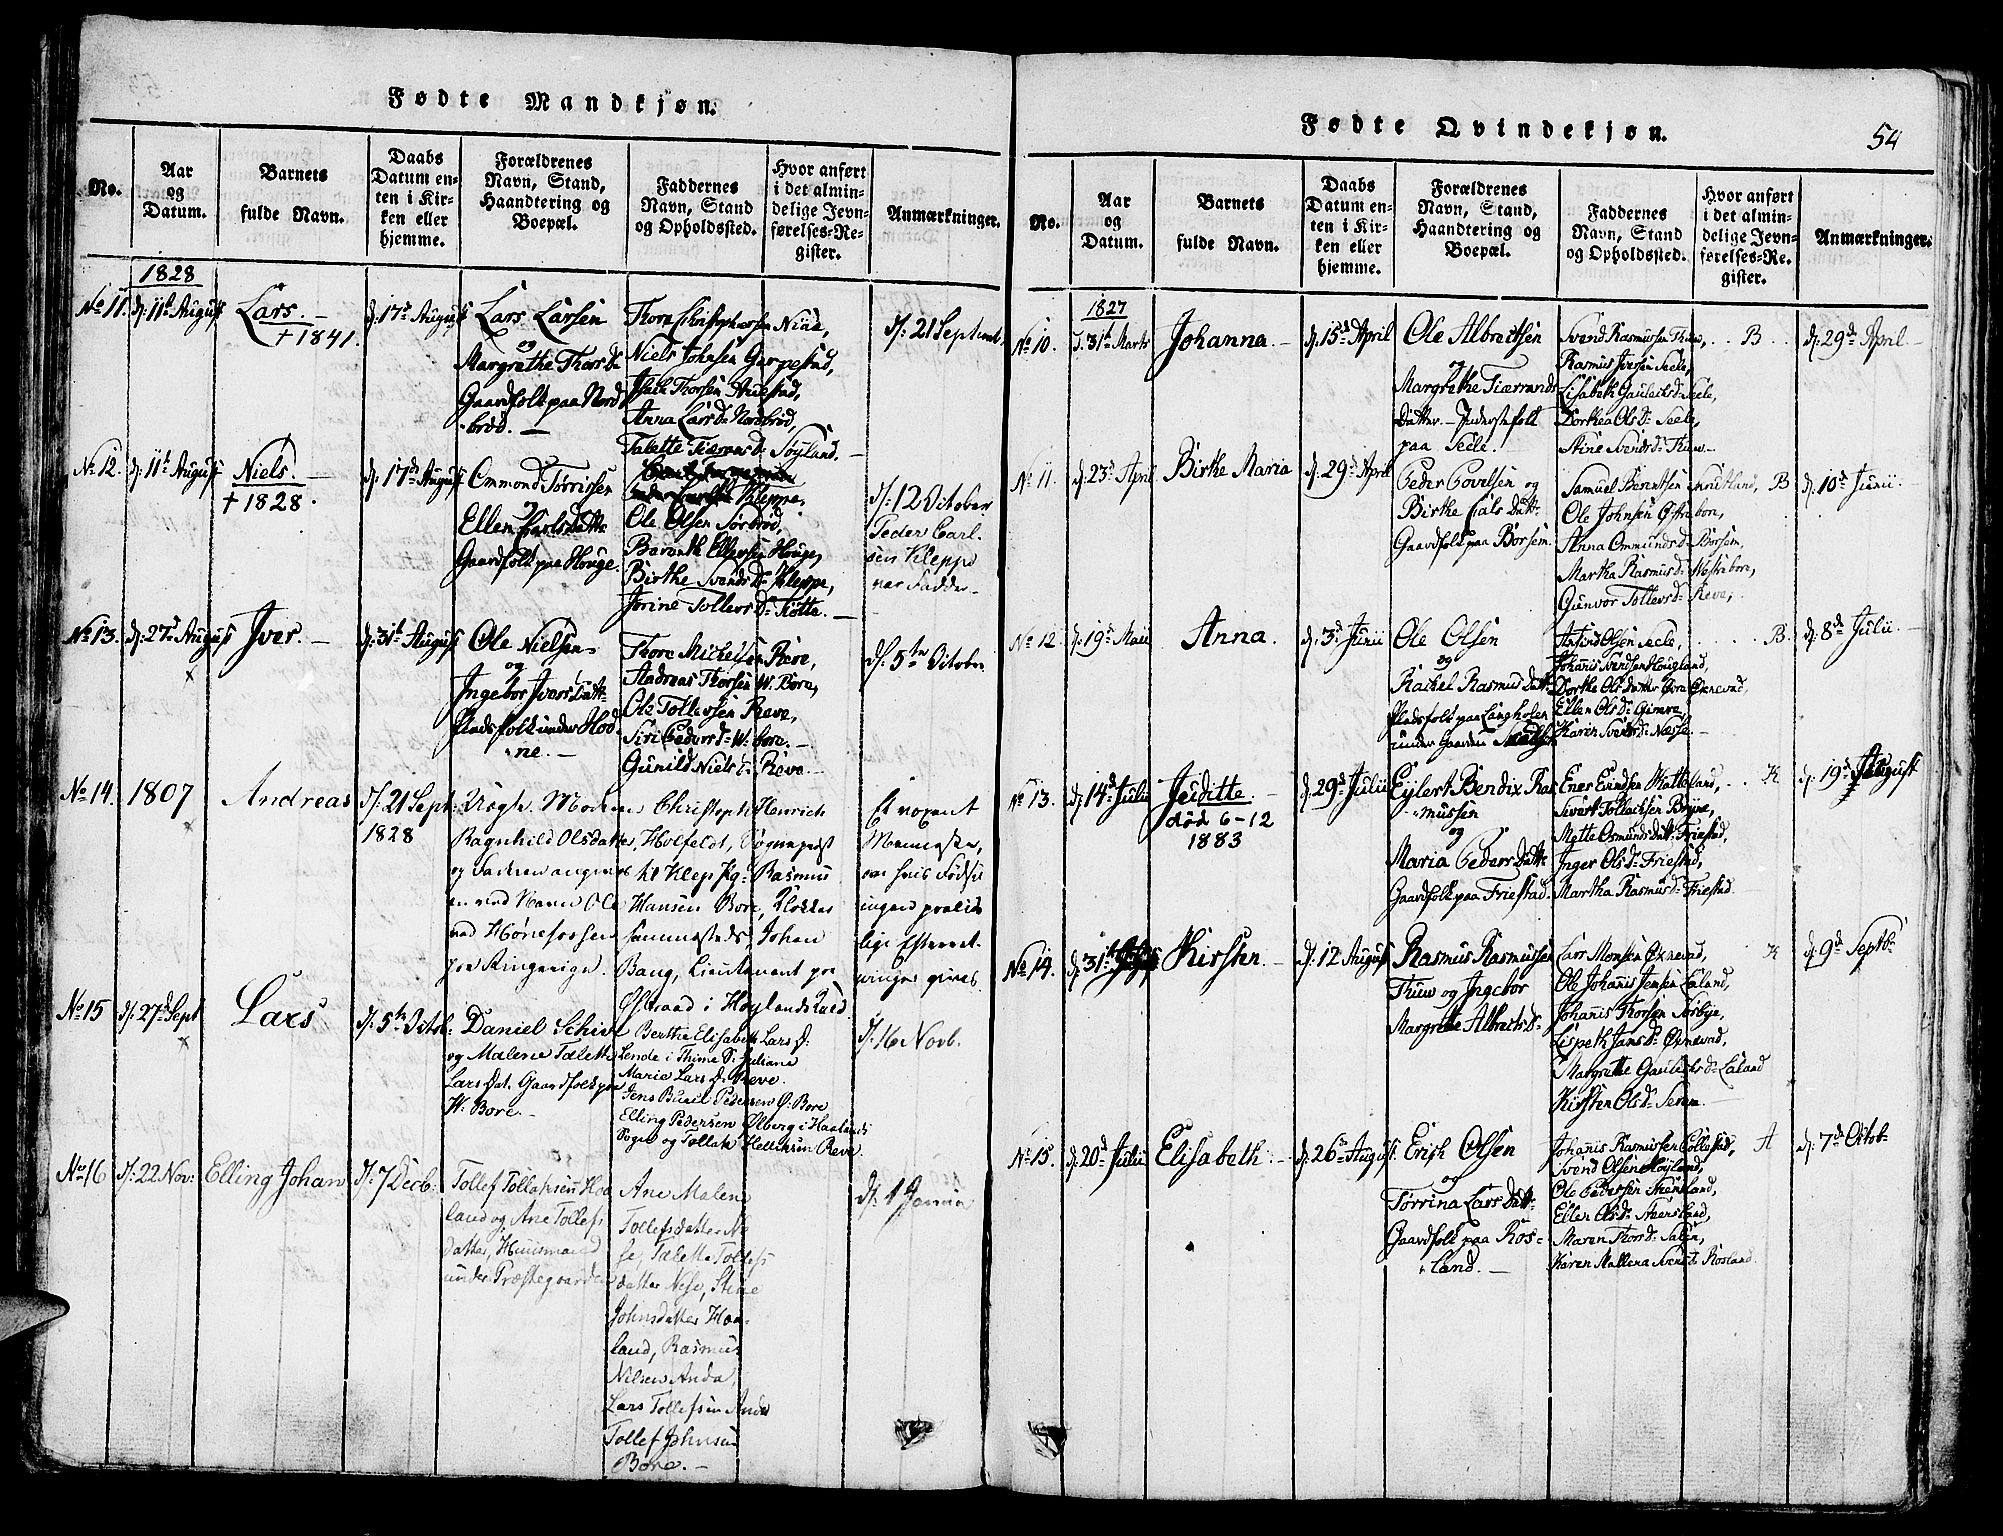 Fødte Mandkjøn.
No.
Aar
og
Datum.
Barnets
fulde Navn.
Daabs
Datum en-
ten i Kir-
ken eller
hjemme.
Forældrenes
Navn, Stand,
Haandtering og
Boepæl.
Faddernes
Navn, Stand
og Opholdssted.
Hvor anført
i det almin-
delige Jevn-
førelses-Re-
gister.
Anmærkninger.
1828
No 11.
d: 11te August
Lars. —
† 1841.
d: 17de August
Lars Larsen
og
Margrethe Thors D.
Gaardfolk paa Nord
-brød. —
Thore Christophersen Niaa,
Niels Johnsen Garpestad,
Thorsen Auestad,
Anna Lars D: Nordbrød,
Talette Tiærans D: Søyland. —
d: 21 Septemb.
No 12.
d: 11te August
Niels. —
† 1828.
d: 17de August
Ommond Tørrissen
og
Ellen Carls datter
Gaardfolk paa Houge.
Kleppe,
Ole Olsen Sørbrød,
Berenth Ellefsen Houge,
Birthe Svends D: Kleppe,
Jorine Tollevs D: Totte. —
d: 12 October
Peder Carl-
sen Kleppe
var Fadder. —
No 13.
d: 27de August
Jver. —
d: 31te August
Ole Nielsen
og
Ingebor Jvers Datt:
Pladsfolk under Hod-
ne. —
Thore Michelsen Reve,
Andreas Thorsen W. Bore,
Ole Tollevsen Reve,
Siri Peders D: W. bore. —
Gunild Niels D: Reve —
d: 5te Octobr
No 14.
1807
Andreas
d: 21 Sept:
1828
Ragnhild Olsdatter,
og Faderen angives
med Navn Ole
ved Hønefossen
paa Ringerige.
Christoph Henrich
Holfeldt, Sognepræst
til Klep Pg: Rasmus
Hansen Bore, Klokker
sammesteds, Johan
Bang, Lieutenant paa
Østraad i Høylands Præd
Et voxent
Menneske,
om hvis Fødsel
ingen paalide-
lige Efterret-
ninger gives.
No 15
d: 27de Sept
Lars
d: 5te Octob:
Daniel Schive
og Malene Talette
Lars Dat. Gaardfolk paa
W. Bore. —
Berthe Elisabeth Lars D:
Lende i Thime S: Juliane
Marie Lars D: Reve.
Jens Buxil Pedersen Ø: Bore
Elling Pedersen Ølberg i Haalands
Sogn og Tollak Helliksen Reve.
d: 16 Novb.
No 16
d: 22 Nov:
Elling Johan
d: 7 Decb:
Tollef Tollaksen Haa-
land og Ane Tollefs
datter, Huusmand
under Præstegaarden
Ane Malene
Tollefsdatter Ne-
se, Talette Tollefs
datter Nese, Stine
Johnsdatter Haa-
land, Rasmus
Nilsen Anda,
Lars Tollefsen Anda
Tollef Johnsen
Bore. —
d: 1 Januar
Fødte Qvindekjøn.
54
No.
Aar
og
Datum.
Barnets
fulde Navn.
Daabs
Datum en-
ten i Kir-
ken eller
hjemme.
Forældrenes
Navn, Stand,
Haandtering og
Boepæl.
Faddernes
Navn, Stand,
og Opholdssted.
Hvor anført
i det almin-
delige Jevn-
førelses-Re-
gister.
Anmærkninger.
1827
No 10.
d. 31te Marts
Johanna. —
d: 15de April
Ole Albretsen
og
Margrethe Tiærrands
Datter. — Inderstefolk
paa Seele.
Svend Rasmussen Thuw,
Rasmus Iversen Seele,
Lisabeth Gauteks D: Seele,
Dorthea Ols D: Seele,
Stine Svends D: Thuw —
B.
d: 29de April —
No 11.
d: 23de April
Birthe Maria
d: 29de April
Peder Povelsen og
Birthe Lals Datt:
Gaardfolk paa Børsem.
Samuel Berentsen
Ole Johnsen Østrabore,
Anna Ommunds D: Børsem,
Martha Rasmus D: Nostrabore,
Gunvor Tollevs D: Reve,
B
d: 10de Junii —
No 12
d: 19de Maii
Anna.
d: 3de Junii
Ole Olsen
og
Rachel Rasmus Datt:
Pladsfolk paa Langholen
under Gaarden
Anfind Olsen Seele,
Johanis Svendsen Hougland,
Dorthe Ols datter Øxnevad,
Ellen Ols D: Gimre,
Karen Svends D: Næsse —
B.
d: 8de Julii —
No 13.
d: 14de Julii
Jeiditte. —
død 6-12
1883
d: 29de Julii
Eylert Bendix Ras-
mussen
og
Maria Peders Datt:
Gaardfolk paa Friestad.
Ener Enersen Hatteland,
Sivert Tollachsen Bryne,
Mette Osmunds Datt: Friestad,
Inger Ols D: Friestad,
Martha Rasmus D: Friestad
K
d: 19de August
No 14.
d: 31te
Kirsten. —
d: 12 August
Rasmus Rasmussen
Thuw og Ingebor
Margrethe Albrects D:
Lars Monsen Øxnevad,
Ole Johanis Jensen Laland,
Johanis Thorsen Sørbye,
Lispeth Jans D: Øxnevad,
Margrethe Gauteks D: Laland
Kirsten Ols D:
K
d: 9de Septb:
No 15.
d: 20de Julii
Elisabeth. —
d: 26de August
Erich Olsen
og
Torrina Lars Datt:
Gaardfolk paa Ros-
land. —
Johanis Rasmussen
Svend Olsen Høyland,
Ole Pedersen
Ellen Ols D:
Maren Thors D:
Karen Mallena Svends D: Rosland
A
d: 7de Octob: